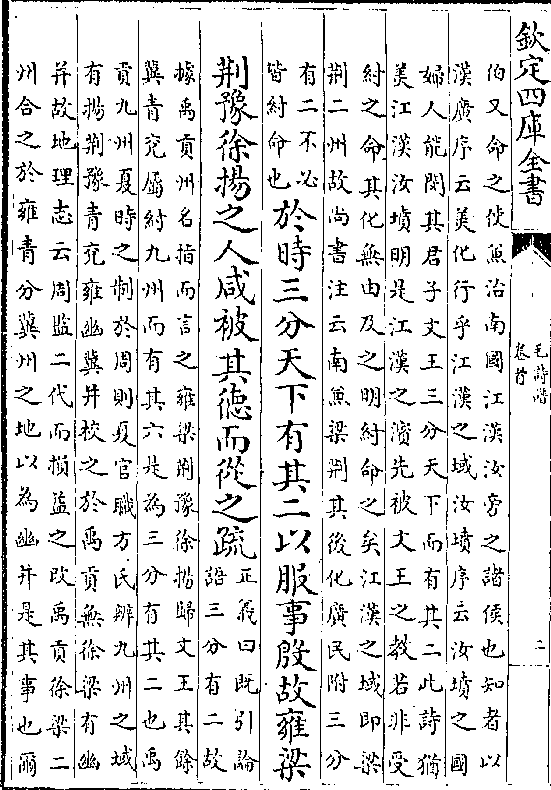 欽定四庫全書
毛詩譜
卷首
二
伯又命之使兼治南國江漢汝旁之諸侯也知者以
漢廣序云美化行乎江漢之域汝墳序云汝墳之國
婦人能閔其君子文王三分天下而有其二此詩猶
美江漢汝墳明是江漢之濱先被文王之教若非受
紂之命其化無由及之明紂命之矣江漢之域即梁
荆二州故尚書注云南兼梁荆其後化廣民附三分
有二不必
皆紂命也
於時三分天下有其二以服事殷故雍梁
荆豫徐揚之人咸被其德而從之疏
正義曰既引論
語三分有二故
據禹貢州名指而言之雍梁荆豫徐揚歸文王其餘
冀青兖屬紂九州而有其六是為三分有其二也禹
貢九州夏時之制於周則夏官職方氏辨九州之域
有揚荆豫青兖雍幽冀并校之於禹貢無徐梁有幽
并故地理志云周監二代而損益之改禹貢徐梁二
州合之於雍青分冀州之地以為幽并是其事也爾